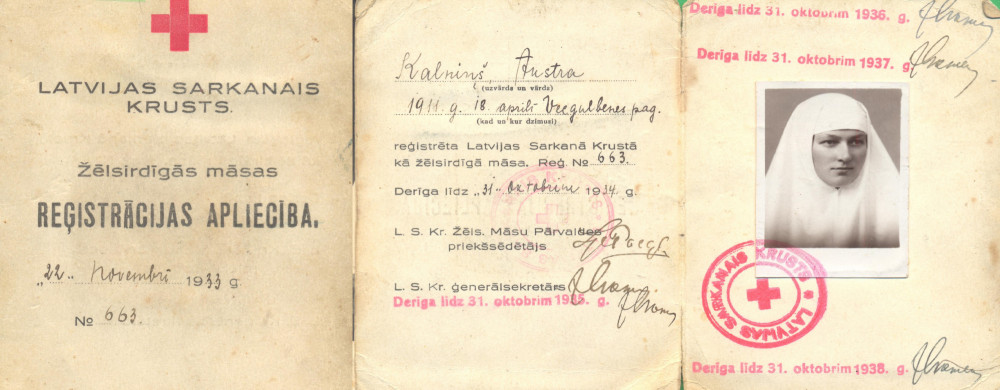 LATVIJAS SARKANAIS
KRUSTS.
Žēlsirdīgās māsas
REĢISTRĀCIJAS APLIECĪBA.
"22" novembrī 1933 g.
№ 663.
Kalniņš, Austra
(uzvārds un vārds)
1911. g. 18. aprīlī Vecgulbenes pag.
(kad un kur dzimusi)
reģistrēta Latvijas Sarkanā Krustā
kā žēlsirdīgā māsa. Reģ. № 663.
Derīga līdz "31" oktobrim 1934 g.
L. S. Kr. Žēls. Māsu Pārvaldes
priekšsēdētājs
L. S. Kr. ģenerālsekretārs
Derīga līdz 31. oktobrim 1935. g.
Derīga līdz 31. oktobrim 1936. g.
Derīga līdz 31. oktobrim 1937. g.
LATVIJAS SARKANAIS KRUSTS
Derīga līdz 31. oktobrim 1938. g.